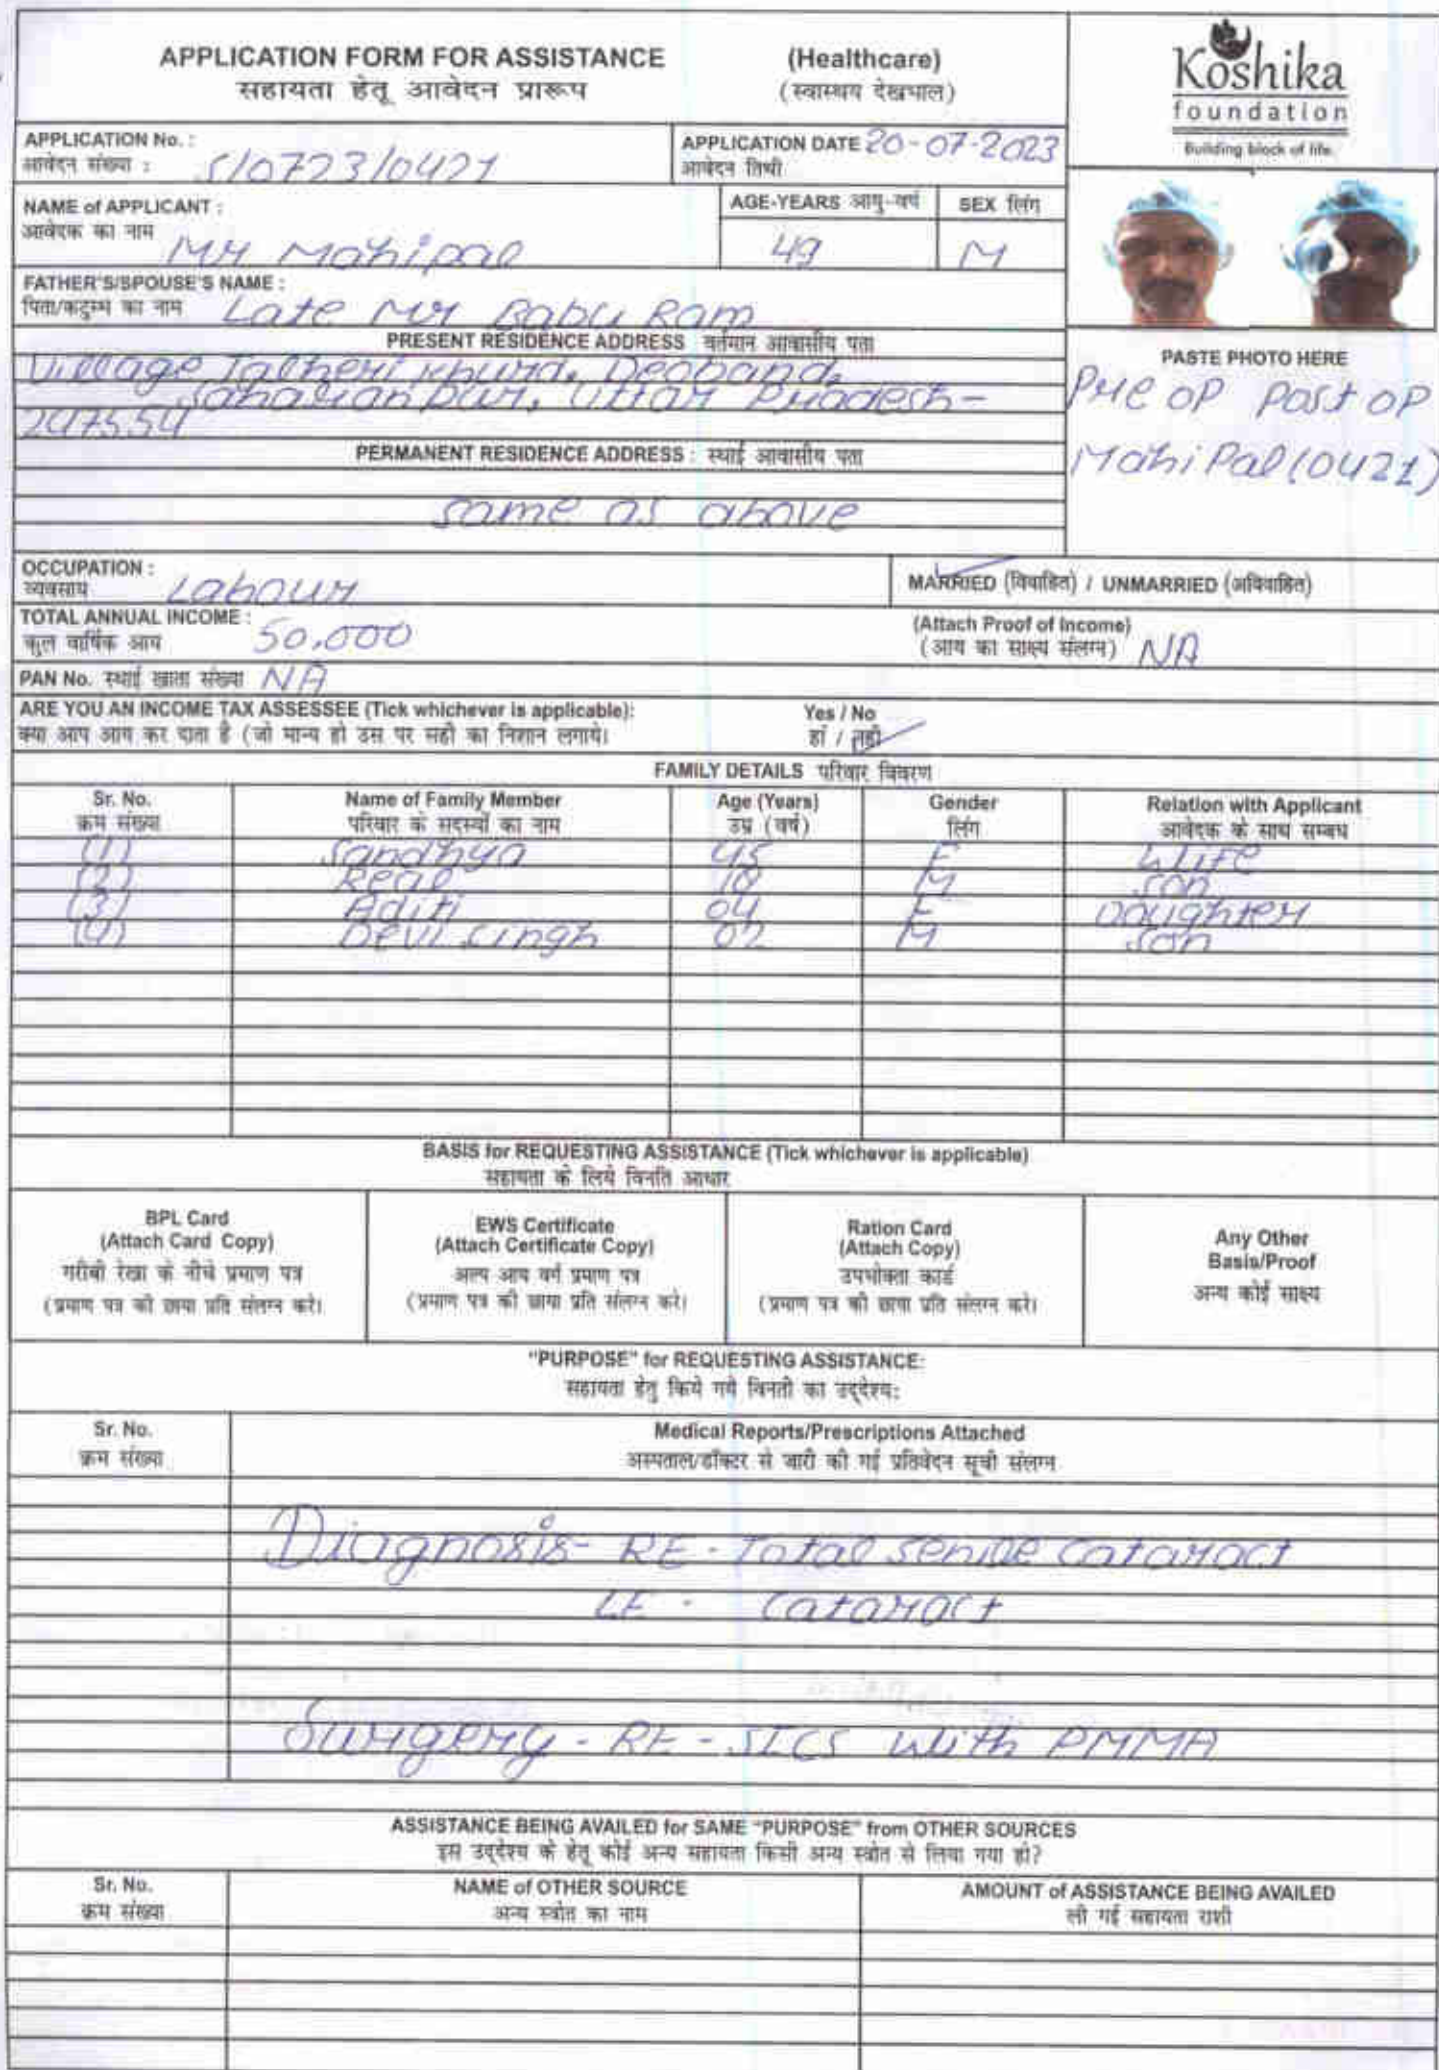 APPLICATION FORM FOR ASSISTANCE (Healthcare)
सहायता हेतू आवेदन प्रारूप (स्वास्थय देखभाल)
Koshika
foundation
Building block of life.
APPLICATION No. :
आवेदन संख्या : S/0723/0421
APPLICATION DATE 20-07-2023
आवेदन तिथी
NAME of APPLICANT :
आवेदक का नाम Mr Mahipal
AGE-YEARS आयु-वर्ष
49
SEX लिंग
M
FATHER'S/SPOUSE'S NAME :
पिता/कटुम्भ का नाम Late Mr Babu Ram
PRESENT RESIDENCE ADDRESS वर्तमान आवासीय पता
Village Talheri Khurd, Deoband,
Saharanpur, Uttar Pradesh-
247554
PERMANENT RESIDENCE ADDRESS : स्थाई आवासीय पता
same as above
PASTE PHOTO HERE
Pre OP Post OP
Mahi Pal (0421)
OCCUPATION :
व्यवसाय Labour
MARRIED (विवाहित) / UNMARRIED (अविवाहित)
TOTAL ANNUAL INCOME :
कुल वार्षिक आय 50,000
(Attach Proof of Income)
(आय का साक्ष्य संलग्न) NA
PAN No. स्थाई खाता संख्या NA
ARE YOU AN INCOME TAX ASSESSEE (Tick whichever is applicable): Yes / No
क्या आप आय कर दाता है (जो मान्य हो उस पर सही का निशान लगाये। हां / नहीं
FAMILY DETAILS परिवार विवरण
Sr. No. Name of Family Member Age (Years) Gender Relation with Applicant
क्रम संख्या परिवार के सदस्यों का नाम उम्र (वर्ष) लिंग आवेदक के साथ सम्बध
(1) Sandhya 45 F Wife
(2) M Son
(3) Aditi 04 F Daughter
(4) Devi Singh 02 M Son
BASIS for REQUESTING ASSISTANCE (Tick whichever is applicable)
सहायता के लिये विनति आधार
BPL Card
(Attach Card Copy)
गरीबी रेखा के नीचे प्रमाण पत्र
(प्रमाण पत्र की छाया प्रति संलग्न करे।
EWS Certificate
(Attach Certificate Copy)
अल्प आय वर्ग प्रमाण पत्र
(प्रमाण पत्र की छाया प्रति संलग्न करे।
Ration Card
(Attach Copy)
उपभोक्ता कार्ड
(प्रमाण पत्र की छाया प्रति संलग्न करे।
Any Other
Basis/Proof
अन्य कोई साक्ष्य
"PURPOSE" for REQUESTING ASSISTANCE:
सहायता हेतु किये गये विनती का उद्देश्य:
Sr. No. Medical Reports/Prescriptions Attached
क्रम संख्या अस्पताल/डॉक्टर से जारी की गई प्रतिवेदन सूची संलग्न
Diagnosis- RE - Total senile cataract
LE - Cataract
Surgery - RE - SICS with PMMA
ASSISTANCE BEING AVAILED for SAME "PURPOSE" from OTHER SOURCES
इस उद्देश्य के हेतू कोई अन्य सहायता किसी अन्य स्त्रोत से लिया गया हो?
Sr. No. NAME of OTHER SOURCE AMOUNT of ASSISTANCE BEING AVAILED
क्रम संख्या अन्य स्त्रोत का नाम ली गई सहायता राशी